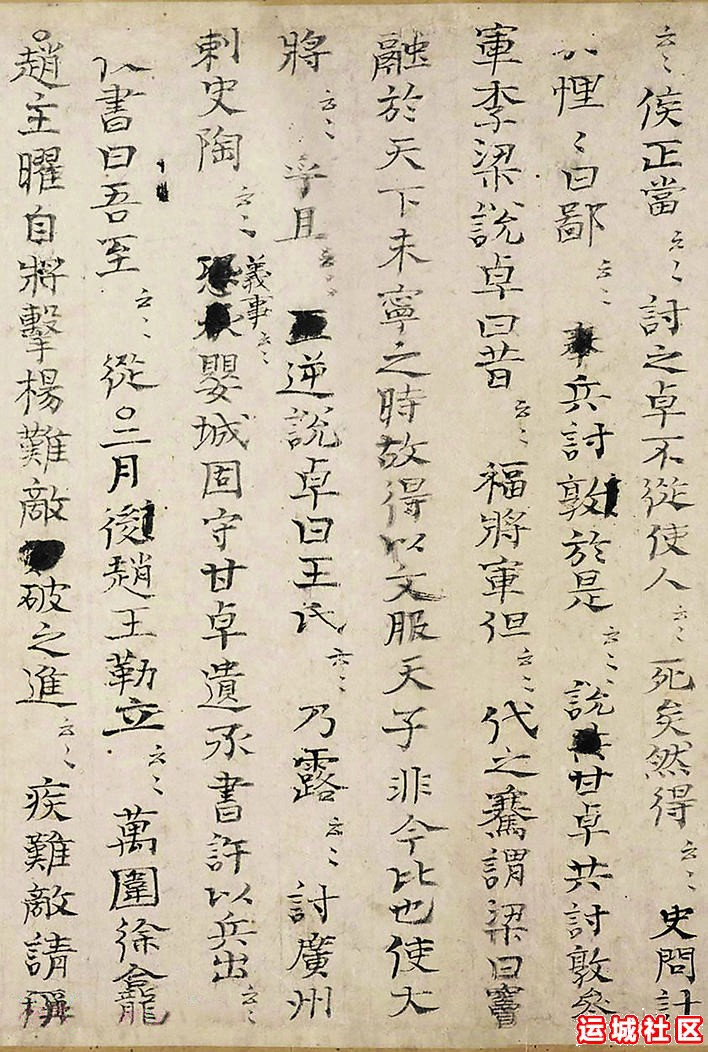 云〻侯正當云〻討之卓不從使人云〻死矣然得云〻史問計
悝〻曰鄙云〻兵討敦於是云〻說甘卓共討敦參
軍李梁說卓曰昔云〻福將軍但云〻代之騫謂梁曰竇
融於天下未寧之時故得以文服天子非今比也使大
將云〻乎且云〻逆說卓曰王氏云〻乃露云〻討廣州
刺史陶云〻義事云〻嬰城固守甘卓遺承書許以兵出云〻
以書曰吾至云〻從○二月後趙王勒立云〻萬圍徐龕
○趙主曜自將擊楊難敵破之進云〻疾難敵請稱
运城社区